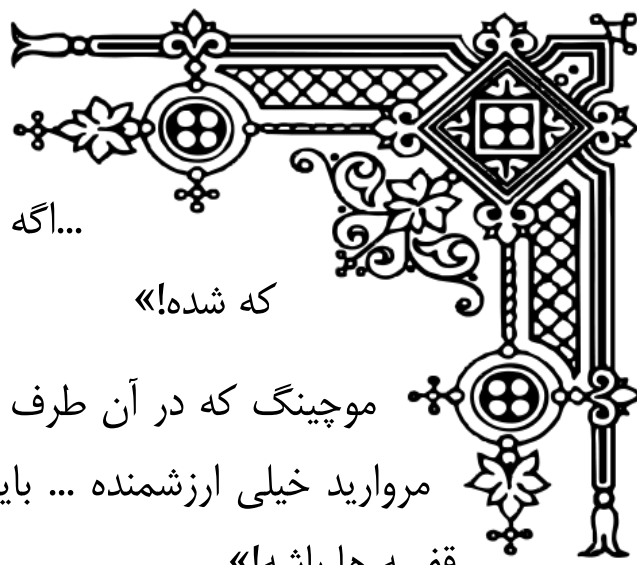 ...اگه
که شده!»
موچینگ که در آن طرف
مروارید خیلی ارزشمنده ...
باشه!»